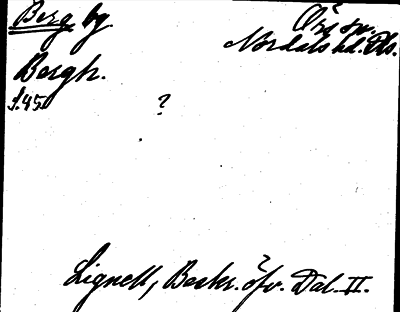 Berg by.
Ör sn.
Nordals hd. Dls.
Bergh.
S. 45.
?
Lignell, Beskr. öfv. Dal. II.